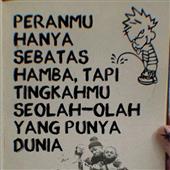 PERANMU
HANYA
SEBATAS
HAMBA, TAPI
TINGKAHMU
SEOLAH-OLAH
YANG PUNYA
DUNIA